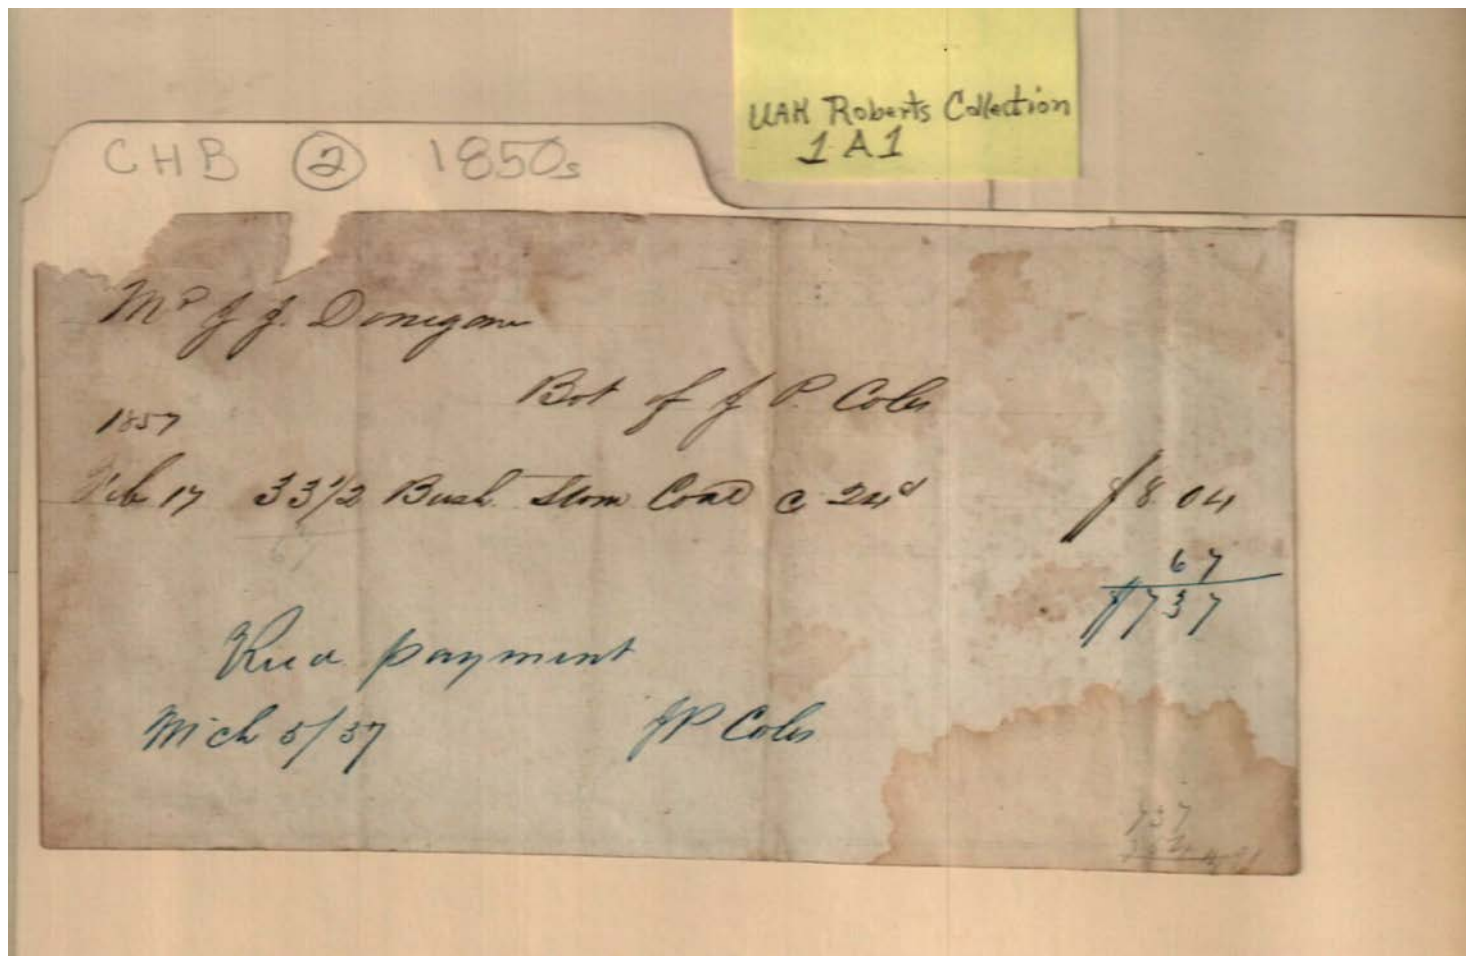 UAH Roberts Collection
1A1
CHB ② 1850s
Mr J J. Donegan
Bot of J P. Coles
1857
Feb 17 33 1/2 Bush. Stone Coal @ 24c $8.04
67
67
$7 37
Recd payment
Mch 5/57 JP Coles
737